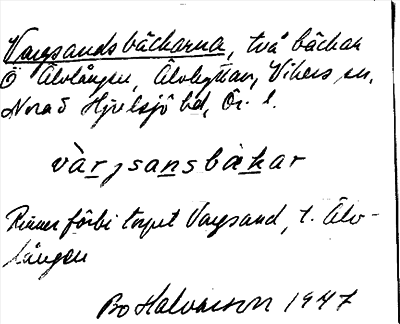 Vargsandsbäckarna, två bäckar
Ö Älvlången, Älvhyttan, Vikers sn,
Nora o Hjulsjö bd, Ör. l.
vàr,sansbàkar
Rinner förbi torpet Vargsand, t. Älv-
lången
Bo Halvarson 1947